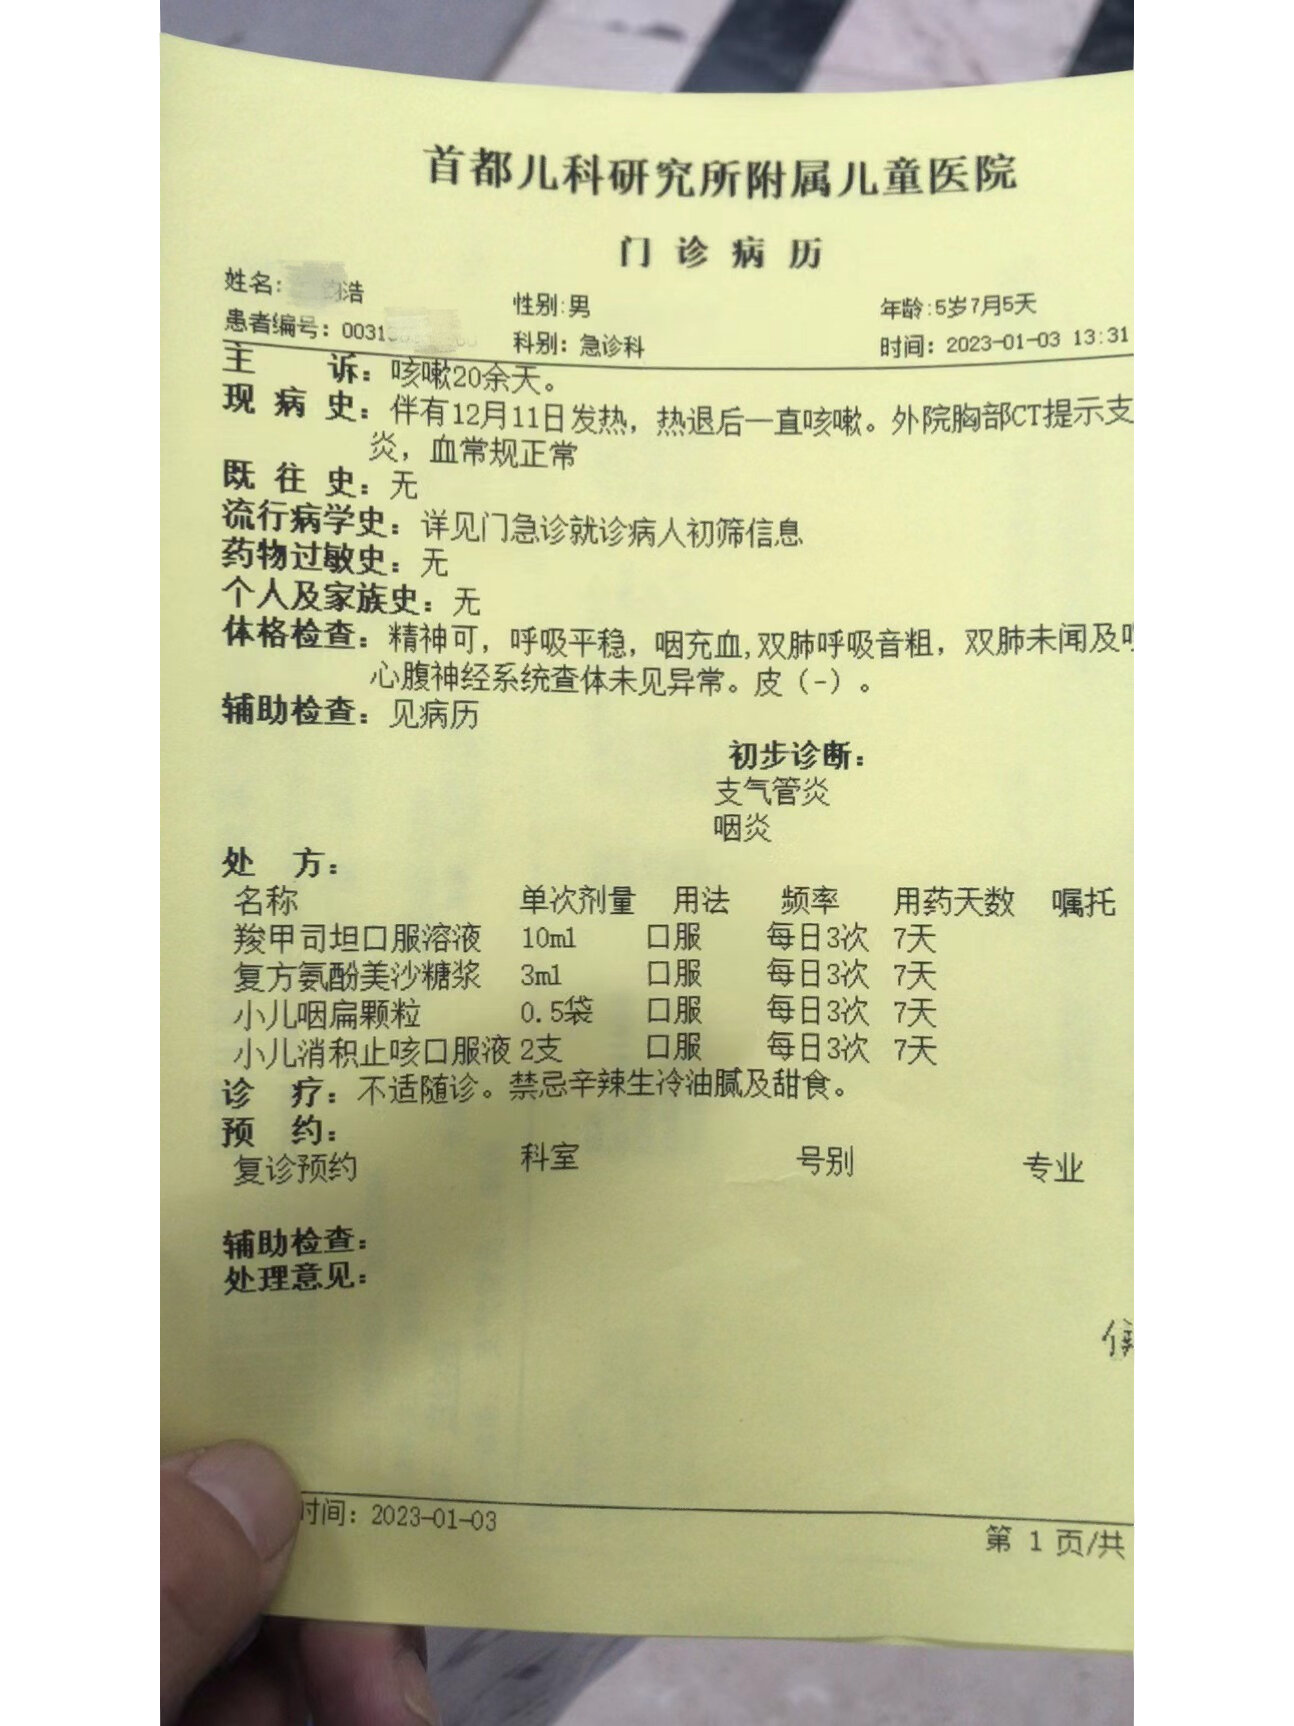 首都儿科研究所附属儿童医院
门诊病历
姓名: 浩 性别:男 年龄:5岁7月5天
患者编号:0031 科别:急诊科 时间:2023-01-03 13:31
主诉:咳嗽20余天。
现病史:伴有12月11日发热,热退后一直咳嗽。外院胸部CT提示支
炎,血常规正常
既往史:无
流行病学史:详见门急诊就诊病人初筛信息
药物过敏史:无
个人及家族史:无
体格检查:精神可,呼吸平稳,咽充血,双肺呼吸音粗,双肺未闻及
心腹神经系统查体未见异常。皮(-)。
辅助检查:见病历
初步诊断:
支气管炎
咽炎
处方:
名称 单次剂量 用法 频率 用药天数 嘱托
羧甲司坦口服溶液 10ml 口服 每日3次 7天
复方氨酚美沙糖浆 3ml 口服 每日3次 7天
小儿咽扁颗粒 0.5袋 口服 每日3次 7天
小儿消积止咳口服液 2支 口服 每日3次 7天
诊疗:不适随诊。禁忌辛辣生冷油腻及甜食。
预约:
复诊预约 科室 号别 专业
辅助检查:
处理意见:
时间:2023-01-03
第 1 页/共